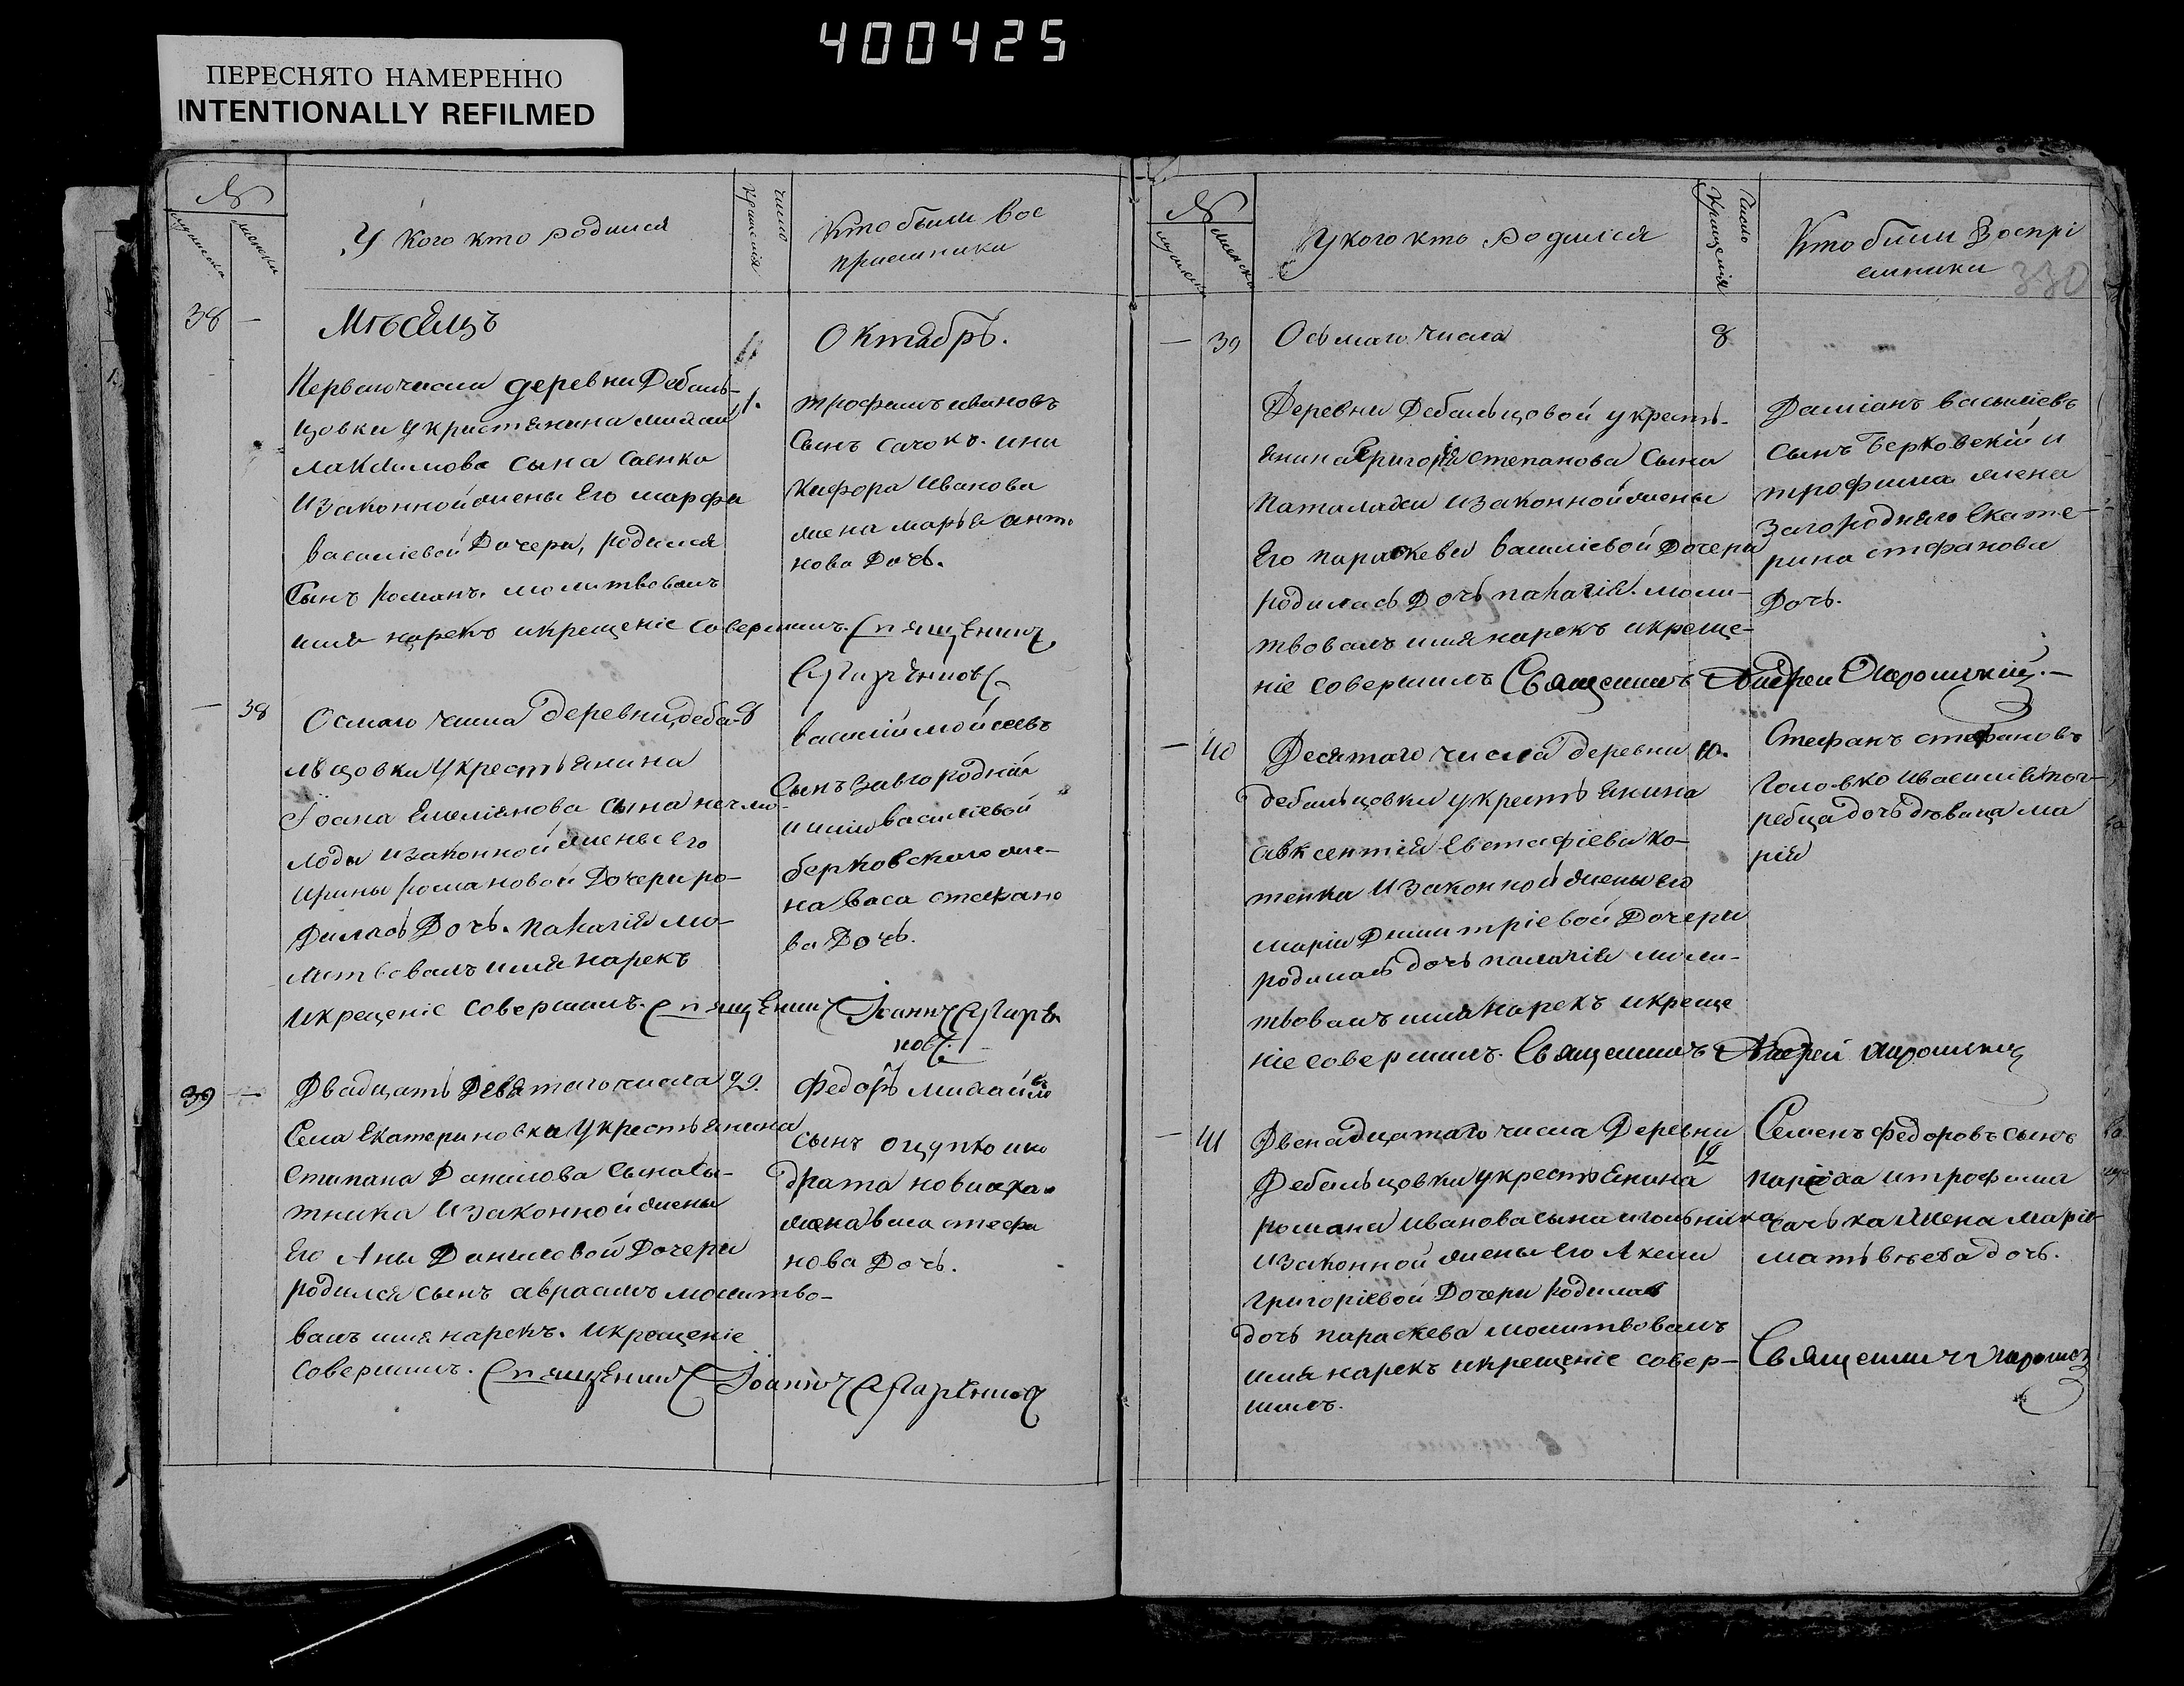 400425
ПЕРЕСНЯТО НАМЕРЕННО
INTENTIONALLY REFILMED
№
У кого кто родился
число крещенія
Кто были вос
приемники
38 —
Мѣсяцъ
Октябрь.
Перваго числа деревни Дебаль-
цовки у крестьянина
Максимова сына Саенко
изаконной жены Его марфы
василіевой Дочери, родился
Сынъ романъ. молитвовалъ
имя нарекъ икрещеніе совершилъ. Священникъ
1.
трофимъ ивановъ
Сынъ сачокъ. ини
кифора Иванова
жена марья анто
нова Дочь.
— 38
Осмаго числа деревни деба-
льцовки укрестьянина
Іоана Емеліянова сына
изаконной жены Его
Ирины романовой Дочери ро-
дилась Дочь. палагія мо-
литвовалъ имя нарекъ
икрещеніе совершилъ. Священникъ Іоаннъ
8
василій мойсеевъ
Сынъ Завгородній
василіевой
берковского же-
на васа стефано
ва Дочь.
39 —
Двадцать Девятаго числа
Села Екатериновки Укрестьянина
Стипана Данилова сына
изаконной жены
Его Аны Даниловой Дочери
родился сынъ авраамъ молитво-
валъ имя нарекъ. икрещеніе
совершилъ. Священникъ Іоаннъ
29.
федоръ михайло
сынъ
драта
жена васа стефа
нова Дочь.
№
У кого кто родился
Число Крещенія
Кто были Воспрі
емники
330
— 39
Осьмаго числа
8
Деревни Дебальцовой укресть-
янина Григорія степанова Сына
изаконной жены
Его параскевы василіевой Дочери
родилась Дочь палагія. моли-
твовалъ имя нарекъ икреще-
ніе совершилъ Священникъ Андрей
Даміанъ василіевъ
сынъ Берковскій и
трофима жена
Загородняго Екате-
рина стефанова
Дочь.
— 40
Десятаго числа деревни
дебальцовки укрестьянина
авксентія Евстафіева ко-
тенка изаконной жены его
маріи Димитріевой Дочери
родилась дочь палагія моли-
твовалъ имя нарекъ икреще
ніе совершилъ. Священникъ Андрей
10.
Стефанъ стефановъ
Головко ивасилія пог-
ребца дочь дѣвица ма
рія
— 41
Двенадцатаго числа Деревни
Дебальцовки укрестьянина
романа иванова сына
изаконной жены Его
григоріевой Дочери родилась
дочь параскева молитвовалъ
имя нарекъ икрещеніе совер-
шилъ.
12
Семенъ федоровъ сынъ
итрофима
сачька жена марія
матвѣева дочь.
Священникъ